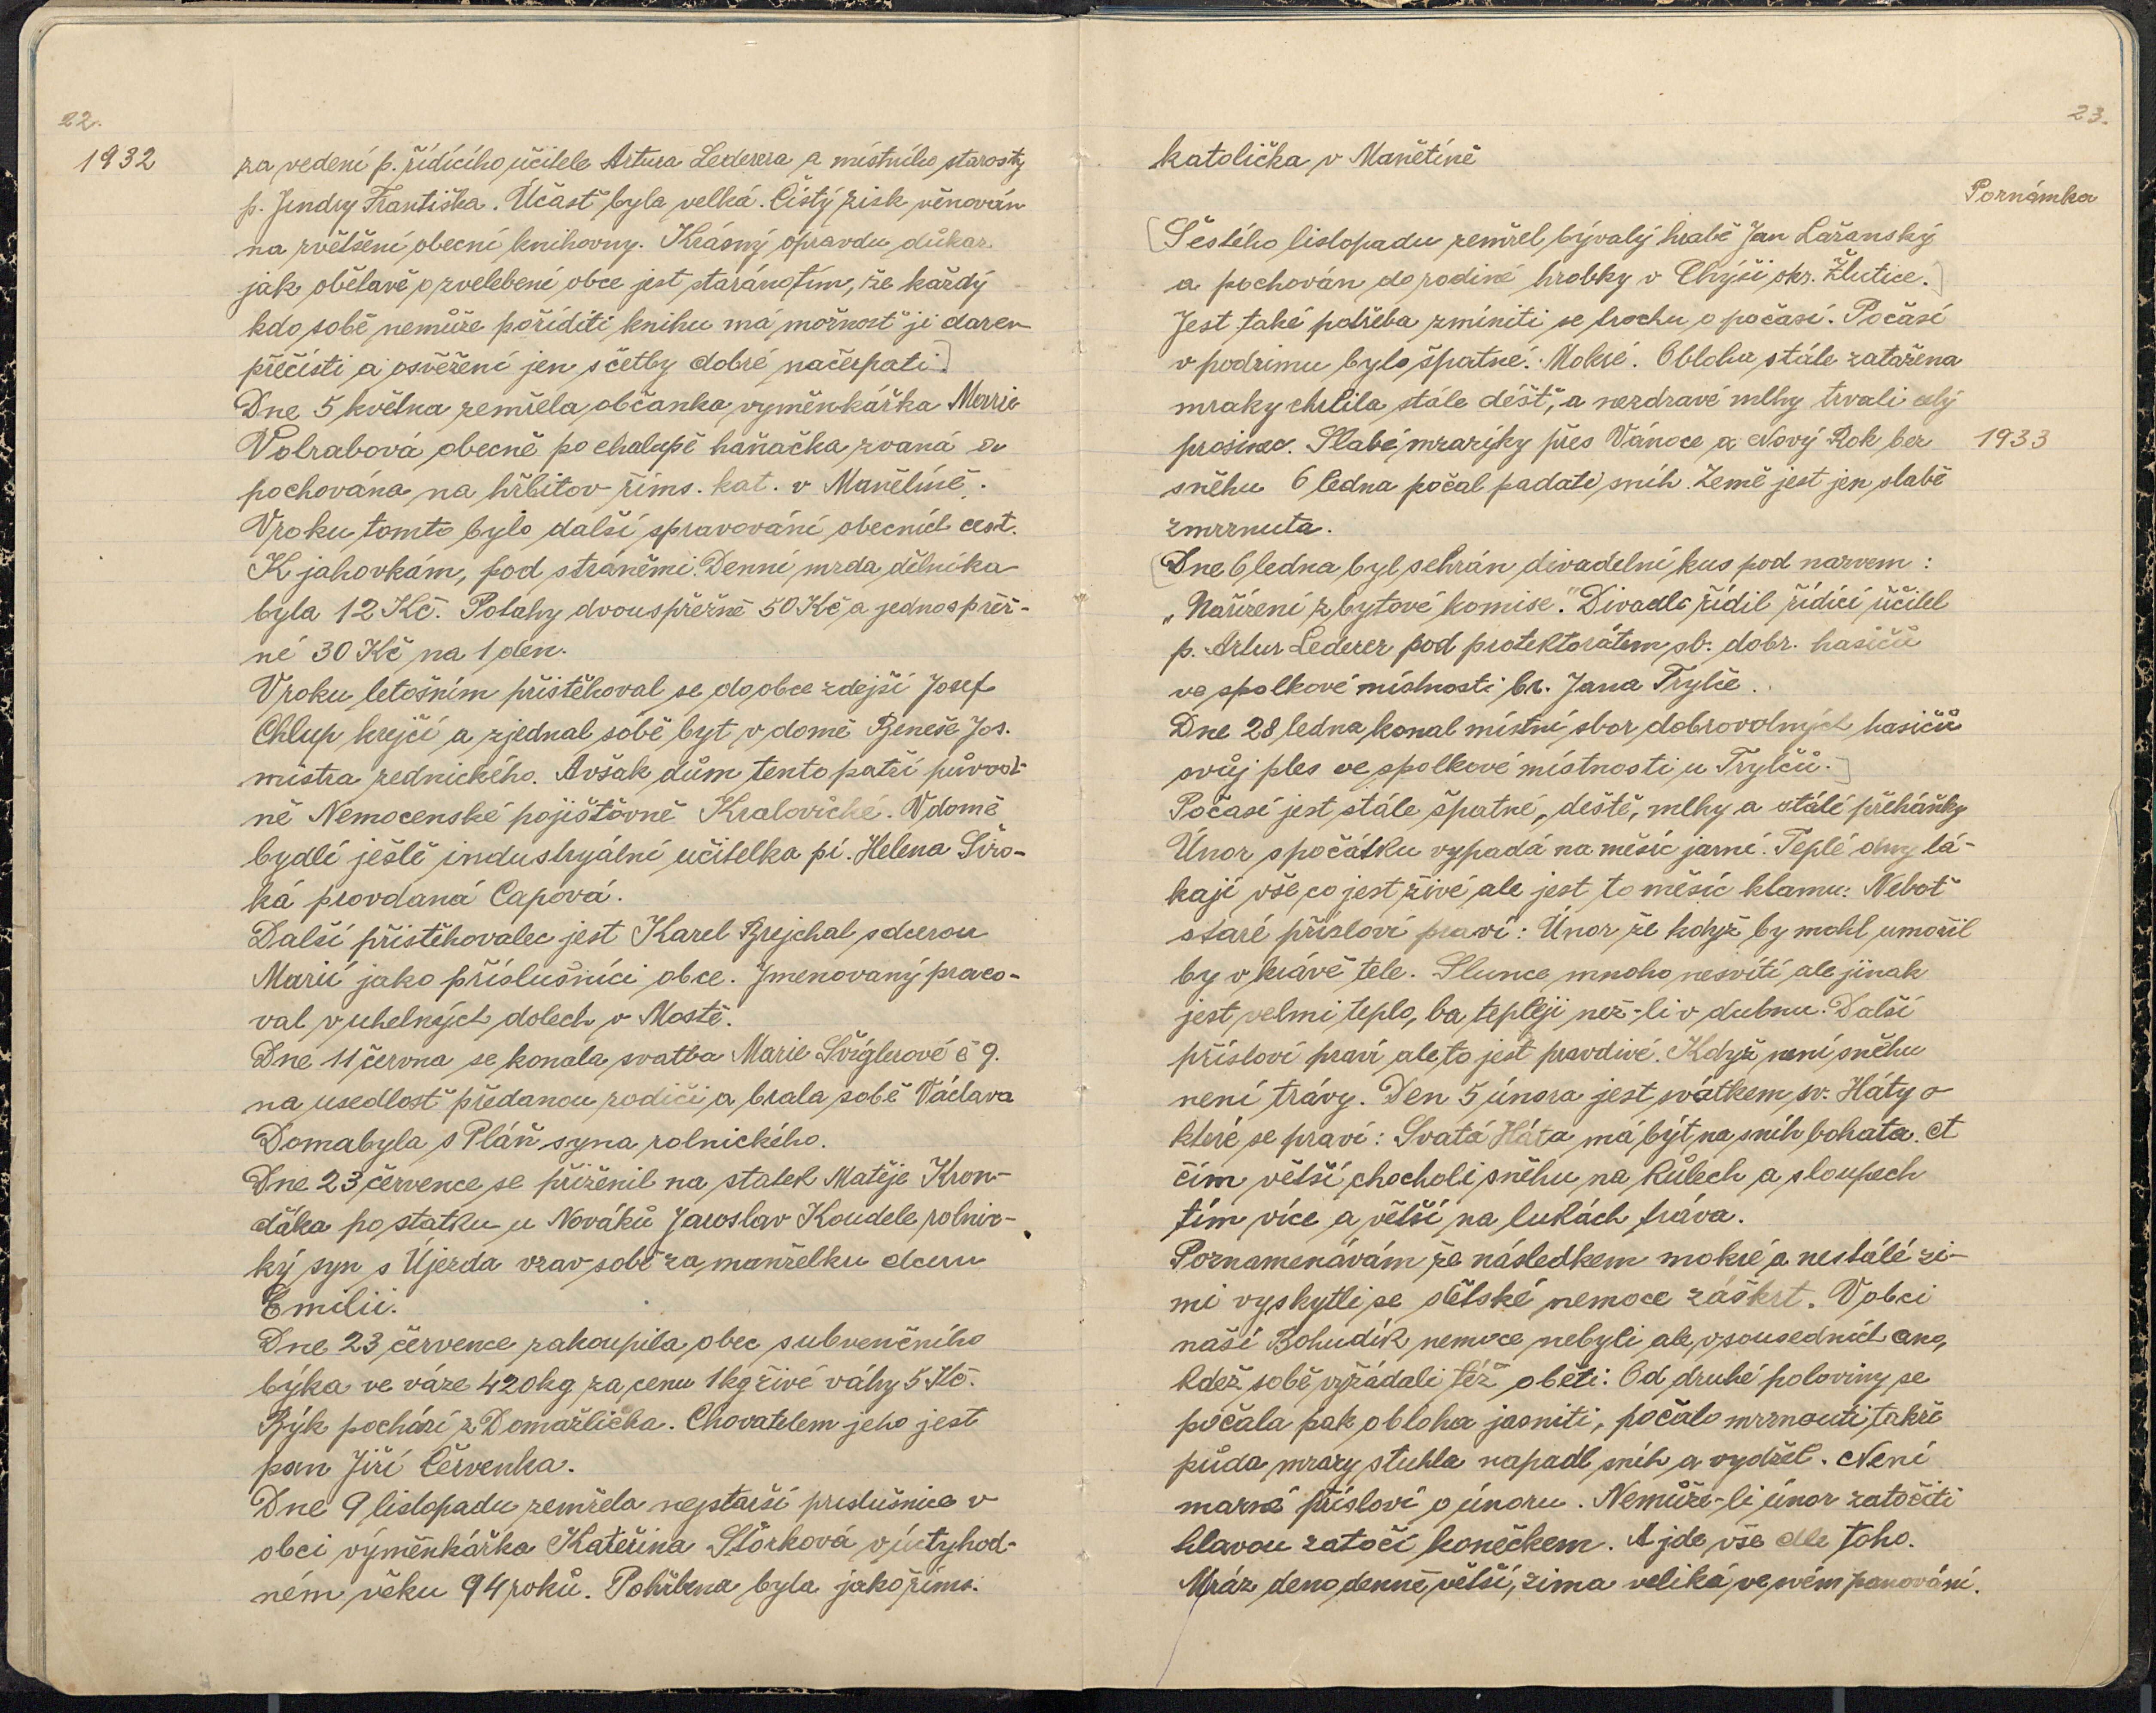 22.
1932
za vedení p. řídícího učitele Artura Lederera a místního starosty
p. Jindry Františka. Účast byla velká. Čistý zisk věnován
na zvětšení obecní knihovny. Krásný opravdu důkaz
jak obětavě o zvelebení obce jest staráno tím, že každý
kdo sobě nemůže poříditi knihu má možnosť ji darem
přečísti a osvěžení jen s četby dobré načerpati.]
Dne 5 května zemřela občanka vyměnkářka Marie
Volrabová obecně po chalupě haňačka zvaná a
pochována na hřbitov řims. kat. v Manětíně.
V roku tomto bylo další spravování obecních cest.
K jahovkám, pod stráněmi. Denní mzda dělníka
byla 12 Kč. Potahy dvouspřežné 50 Kč a jednospřež-
né 30 Kč na 1 den.
V roku letošním přistěhoval se do obce zdejší Josef
Chlup krejčí a zjednal sobě byt v domě Beneše Jos.
mistra zednického. Avšak dům tento patří původ-
ně Nemocenské pojišťovně Kralovické. V domě
bydlí ještě industryální učitelka pí. Helena Širo-
ká provdaná Capová.
Další přistěhovalec jest Karel Brejchal s dcerou
Marií jako příslušníci obce. Jmenovaný praco-
val v uhelných dolech v Mostě.
Dne 11 června se konala svatba Marie Švíglerové č 9.
na usedlosť předanou rodiči a brala sobě Václava
Domabyla s Pláň syna rolnického.
Dne 23 července se přiženil na statek Matěje Kron-
ďáka po statku u Nováků Jaroslav Koudele rolnic-
ký syn s Újezda vzav sobě za manželku dceru
Emilii.
Dne 23 července zakoupila obec subvenčního
býka ve váze 420 kg za cenu 1 kg živé váhy 5 Kč.
Býk pochází z Domažlicka. Chovatelem jeho jest
pan Jiří Červenka.
Dne 9 listopadu zemřela nejstarší prislušnice v
obci výměnkářka Kateřina Štorková v úctyhod-
ném věku 94 roků. Pohřbena byla jako řims.
23.
katolička v Manětíně
Poznámka
[Šestého listopadu zemřel bývalý hrabě Jan Lažanský
a pochován do rodiné hrobky v Chýši okr. Žlutice.]
Jest také potřeba zmíniti se trochu o počasí. Počasí
v podzimu bylo špatné. Mokré. Obloha stále zatažena
mraky chrlila stále déšť, a nezdravé mlhy trvali celý
prosinec. Slabé mrazíky přes Vánoce a Nový Rok bez
1933
sněhu 6 ledna počal padati sníh. Země jest jen slabě
zmrznuta.
[Dne 6 ledna byl sehrán divadelní kus pod nazvem:
„Nařízení z bytové komise." Divadlo řídil řídící učitel
p. Artur Lederer pod protektorátem sb. dobr. hasičů
ve spolkové místnosti br. Jana Trylče.
Dne 28 ledna konal místní sbor dobrovolných hasičů
svůj ples ve spolkové místnosti u Trylčů.]
Počasí jest stále špatné, deště, mlhy a stálé přeháňky
Únor s počátku vypadá na měsíc jarní. Teplé dny lá-
kají vše co jest živé ale jest to měsíc klamu: Neboť
staré přísloví praví: Únor že když by mohl umořil
by v krávě tele. Slunce mnoho nesvítí ale jinak
jest velmi teplo, ba tepleji než-li v dubnu. Další
přísloví praví ale to jest pravdivé. Když není sněhu
není trávy. Den 5 února jest svátkem sv. Háty o
které se praví: Svatá Háta má být na sníh bohata. A
čím větší chocholi sněhu na kůlech a sloupech
tím více a větší na lukách tráva.
Poznamenávám že následkem mokré a nestálé zi-
mi vyskytli se dětské nemoce záškrt. V obci
naší Bohudík nemoce nebyli ale v sousedních ano,
kdež sobě vyžádali též oběti. Od druhé poloviny se
počala pak obloha jasniti, počalo mrznouti takže
půda mrazy stuhla napadl sníh a vydržel. Není
marné přísloví o únoru. Nemůže-li únor zatočiti
hlavou zatočí konečkem. A jde vše dle toho.
Mráz deno denně větší, zima veliká ve svém panování.